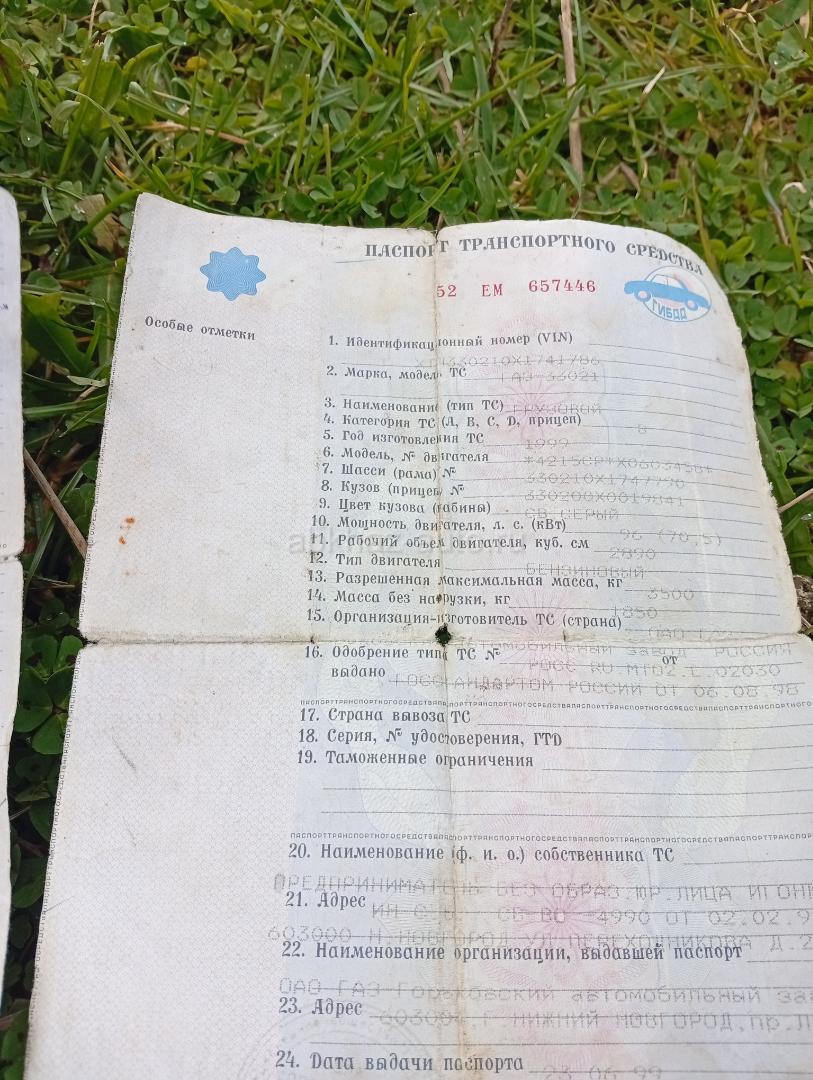 ПАСПОРТ ТРАНСПОРТНОГО СРЕДСТВА
52 ЕМ 657446
ГИБДД
Особые отметки
1. Идентификационный номер (VIN)
ХТН330210Х1741786
2. Марка, модель ТС ГАЗ-33021
3. Наименование (тип ТС) ГРУЗОВОЙ
4. Категория ТС (А, В, С, D, прицеп) В
5. Год изготовления ТС 1999
6. Модель, № двигателя
7. Шасси (рама) № 330210Х1747790
8. Кузов (прицеп) № 330200Х0019841
9. Цвет кузова (кабины) СВ.СЕРЫЙ
10. Мощность двигателя, л. с. (кВт) 96 (70,5)
11. Рабочий объем двигателя, куб. см 2890
12. Тип двигателя БЕНЗИНОВЫЙ
13. Разрешенная максимальная масса, кг 3500
14. Масса без нагрузки, кг 1850
15. Организация-изготовитель ТС (страна) ОАО
ЗАВОД РОССИЯ
16. Одобрение типа ТС № РОСС RU.МТ02.Е.02030 от
выдано ГОССТАНДАРТОМ РОССИИ ОТ 06.08.98
17. Страна вывоза ТС
18. Серия, № удостоверения, ГТD
19. Таможенные ограничения
20. Наименование (ф. и. о.) собственника ТС
ПРЕДПРИНИМАТЕЛЬ БЕЗ ОБРАЗ.ЮР.ЛИЦА
21. Адрес СВ-ВО 4990 ОТ 02.02.9
603000 Н.НОВГОРОД УЛ. Д.2
22. Наименование организации, выдавшей паспорт
ОАО ГАЗ Горьковский автомобильный
23. Адрес г.НИЖНИЙ НОВГОРОД,пр.
24. Дата выдачи паспорта 23 06 99